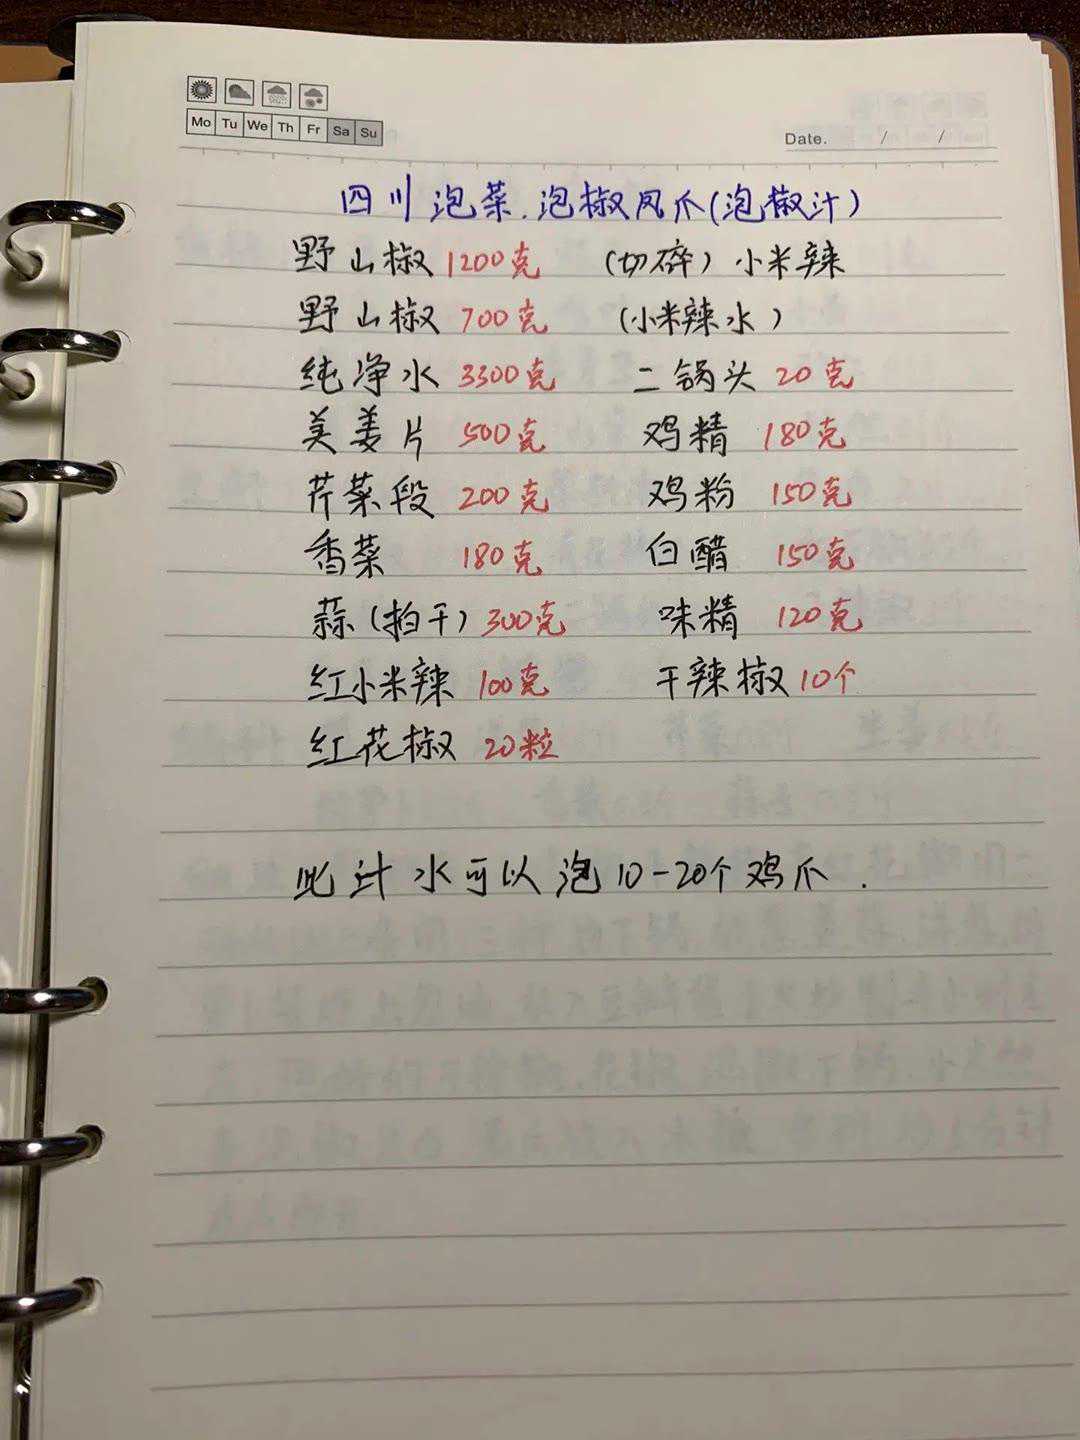 Mo Tu We Th Fr Sa Su
Date. / /
四川泡菜.泡椒凤爪(泡椒汁)
野山椒 1200克 (切碎) 小米辣
野山椒 700克 (小米辣水)
纯净水 3300克 二锅头 20克
美姜片 500克 鸡精 180克
芹菜段 200克 鸡粉 150克
香菜 180克 白醋 150克
蒜(拍干) 300克 味精 120克
红小米辣 100克 干辣椒 10个
红花椒 20粒
此汁水可以泡10-20个鸡爪.